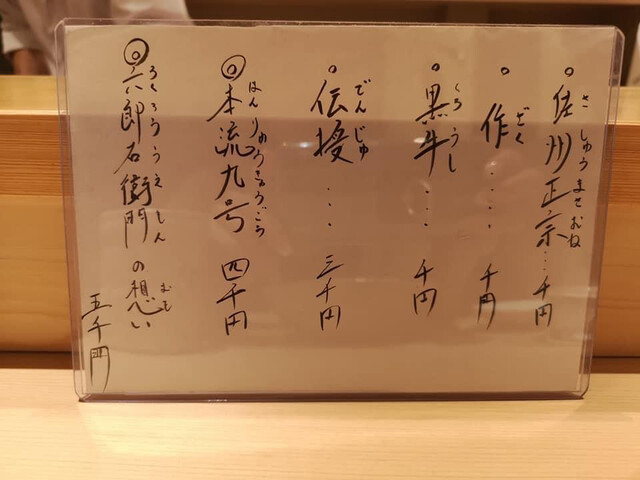 ○佐州正宗…千円
さしゅうまさむね
○作....千円
ざく
○黒牛...千円
くろうし
○伝授...三千円
でんじゅ
◎本流九号 四千円
ほんりゅうきゅうごう
◎六郎右衛門の想い
ろくろううえもん おも
五千円